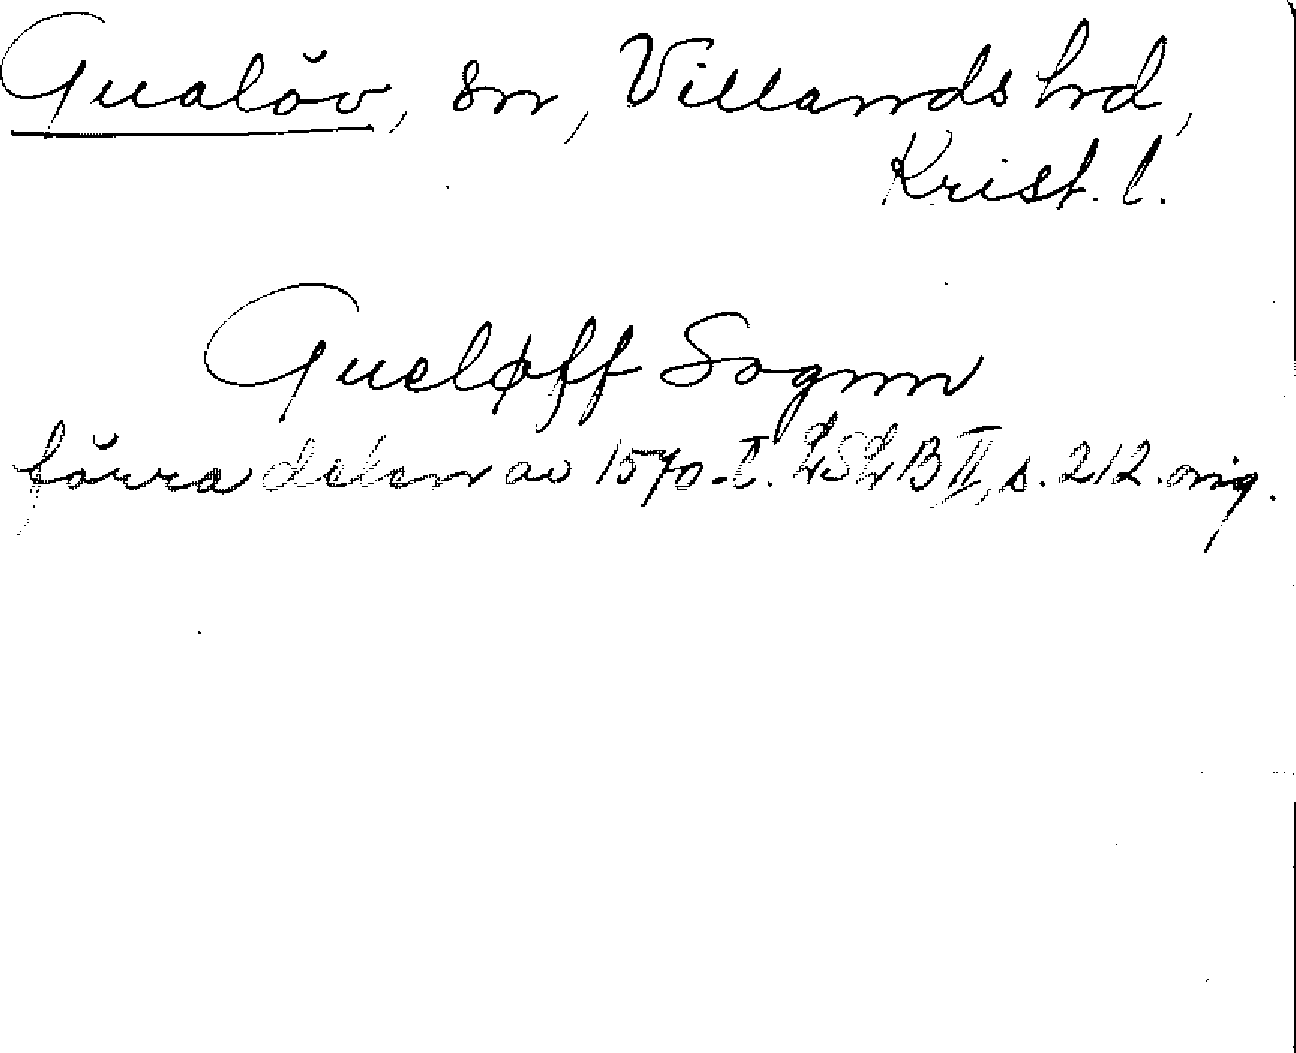 Gualöv, sn, Villands hrd,
Krist. l.
Gueløff Sognn
förra delen av 1570-t. LSLB II, s. 212. orig.